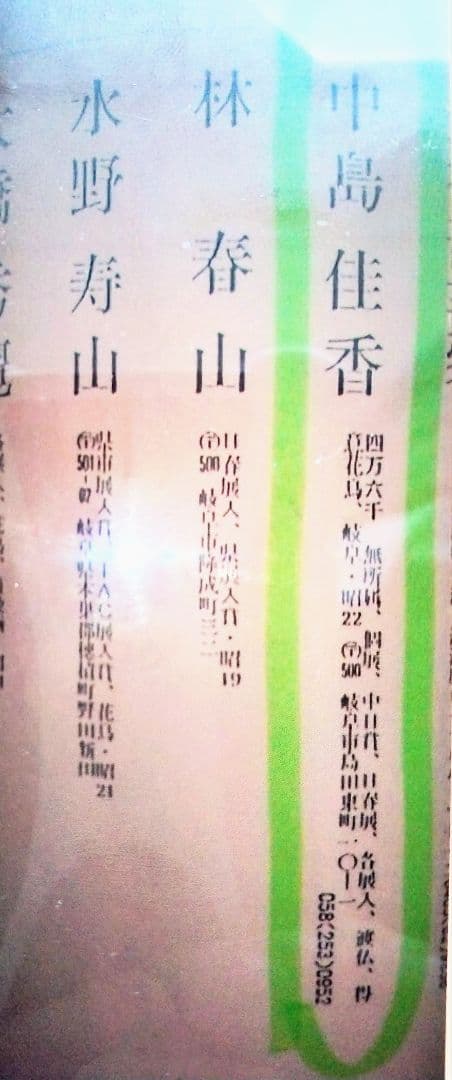 中島佳香
四万六千 無所属、個展、中日賞、日春展、各展入、渡仏、得
意花鳥、岐阜・昭22 〒500 岐阜市島田東町一〇ー一
058(253)0952
林 春山
日春展入、県展入賞・昭19
〒500 岐阜市隆成町三二
水野寿山
県市展入賞、花鳥・昭21
〒501-02 岐阜県本巣郡穂積町野田新田